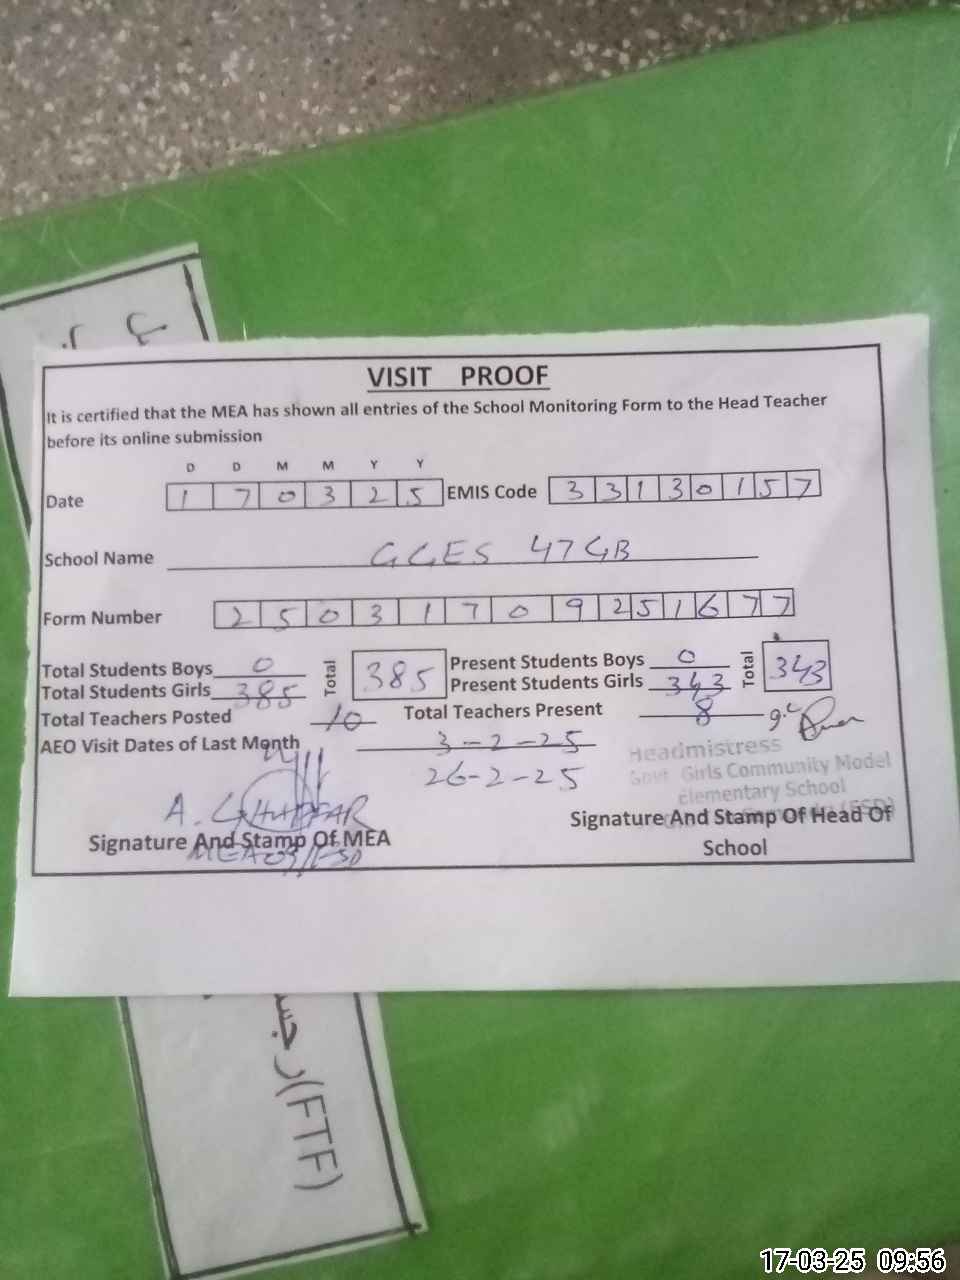 VISIT PROOF
It is certified that the MEA has shown all entries of the School Monitoring Form to the Head Teacher
before its online submission
D D M M Y Y
Date 1 7 0 3 2 5 EMIS Code 3 3 1 3 0 1 5 7
School Name GGES 47 GB
Form Number 2 5 0 3 1 7 0 9 2 5 1 6 7 7
Total Students Boys 0 Total 385 Present Students Boys 0 Total 343
Total Students Girls 385 Present Students Girls 343
Total Teachers Posted 10 Total Teachers Present 8
AEO Visit Dates of Last Month 3-2-25
26-2-25
Headmistress
Govt Girls Community Model
Elementary School
A. GHAFFAR
Signature And Stamp Of MEA
Signature And Stamp Of Head Of
School
رجس
(FTF)
17-03-25 09:56